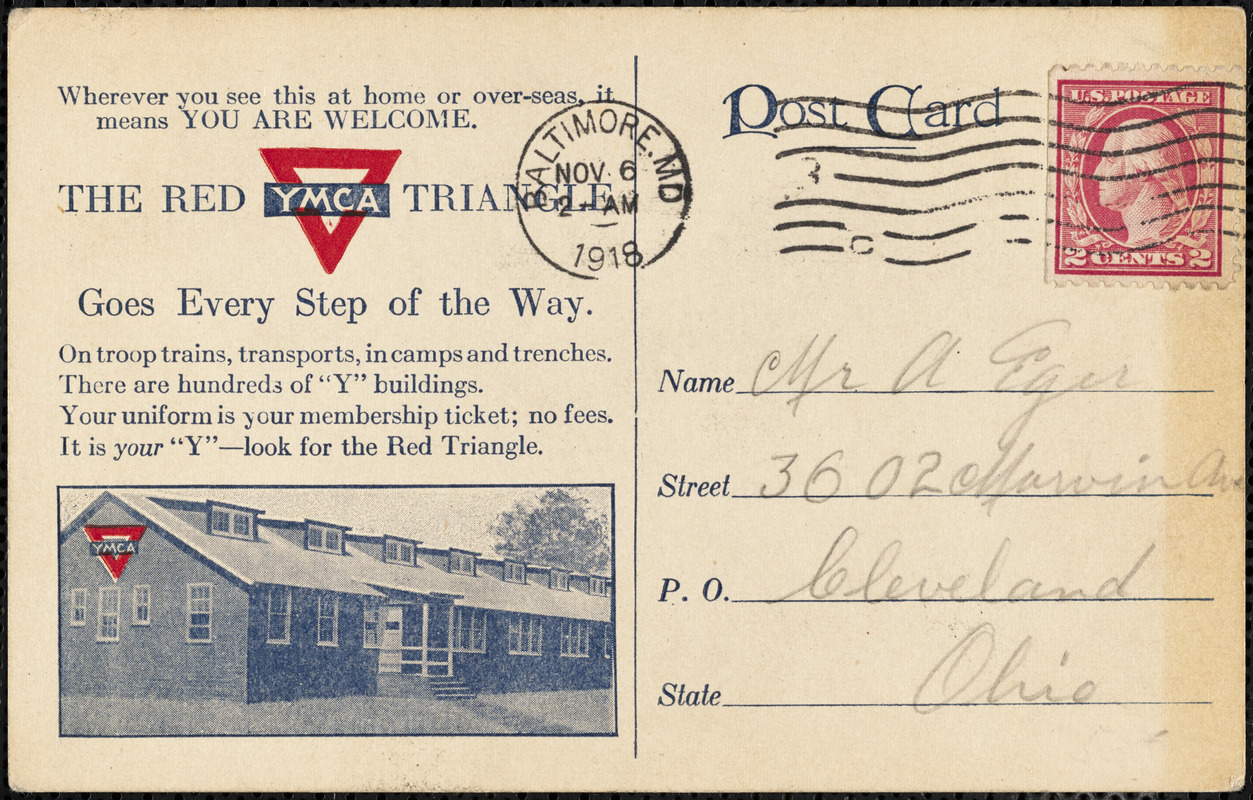 Wherever you see this at home or over-seas, it
means YOU ARE WELCOME.
THE RED YMCA TRIANGLE
Goes Every Step of the Way.
On troop trains, transports, in camps and trenches.
There are hundreds of "Y" buildings.
Your uniform is your membership ticket; no fees.
It is your "Y"—look for the Red Triangle.
YMCA
BALTIMORE, MD
NOV 6
2 - AM
1918
Post Card
U.S. POSTAGE
2 CENTS 2
Name Mr A Eger
Street 3602 Marvin Ave
P. O. Cleveland
State Ohio